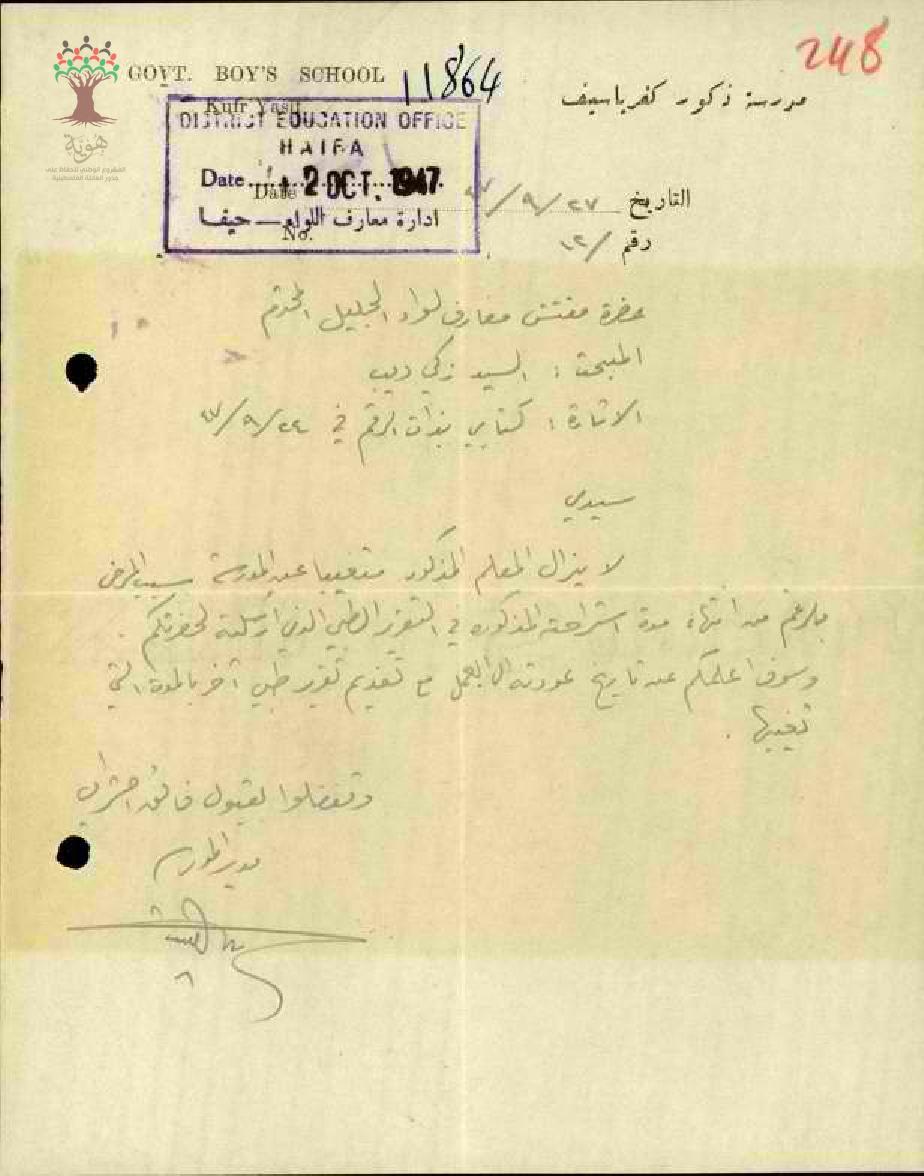 248
GOVT. BOY'S SCHOOL
11864
Kufr Yasif
مدرسة ذكور كفرياسيف
هوية
المشروع الوطني للحفاظ على
جذور العائلة الفلسطينية
DISTRICT EDUCATION OFFICE
HAIFA
Date 2 OCT. 1947
Date
ادارة معارف اللواء - حيفا
No.
التاريخ ٢٧/٩/٤٧
رقم ١٢/
حضرة مفتش معارف لواء الجليل المحترم
المبحث : السيد زكي ديب
الاشارة : كتابي بذات الرقم في ٢٤/٩/٤٧
سيدي
لا يزال المعلم المذكور متغيبا عن المدرسة بسبب المرض
بالرغم من انتهاء مدة استراحته المذكورة في التقرير الطبي الذي ارسلته لحضرتكم .
وسوف اعلمكم عن تاريخ عودته الى العمل مع تقديم تقرير طبي آخر بالمدة التي
تغيبها .
وتفضلوا بقبول فائق احترامي
مدير المدرسة